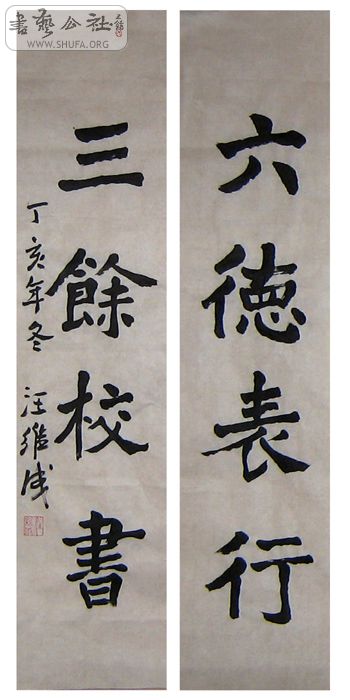 六德表行
三餘校書
丁亥年冬 汪維
書藝公社
WWW.SHUFA.ORG